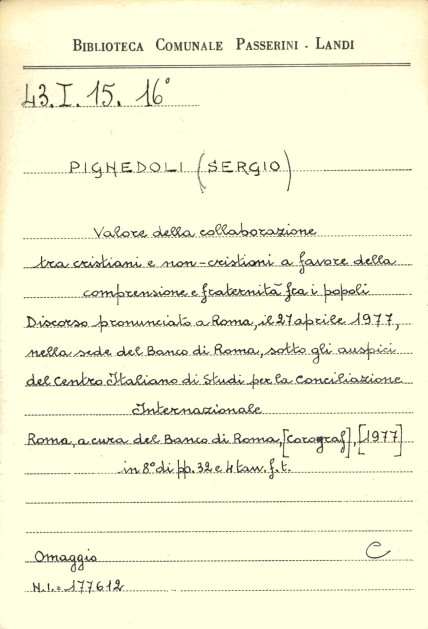 BIBLIOTECA COMUNALE PASSERINI - LANDI
43.I.15.16°
PIGNEDOLI (SERGIO)
Valore della collaborazione
tra cristiani e non-cristiani a favore della
comprensione e fraternità fra i popoli
Discorso pronunciato a Roma, il 27 aprile 1977,
nella sede del Banco di Roma, sotto gli auspici
del Centro Italiano di Studi per la Conciliazione
Internazionale
Roma, a cura del Banco di Roma, [Corograf], [1977]
in 8° di pp. 32 e 4 tav. f. t.
Omaggio C
N.I. = 177612